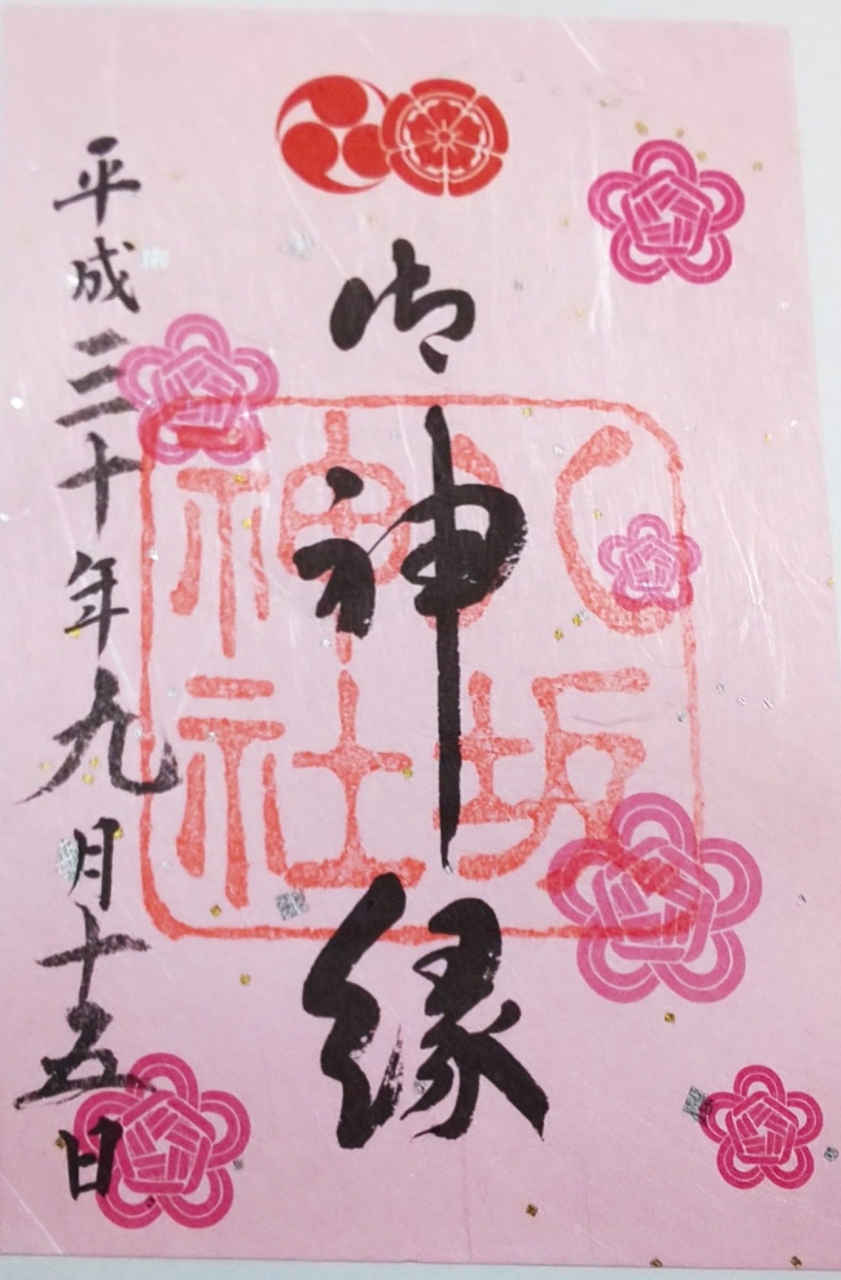 御神縁
八坂
神社
平成三十年九月十五日